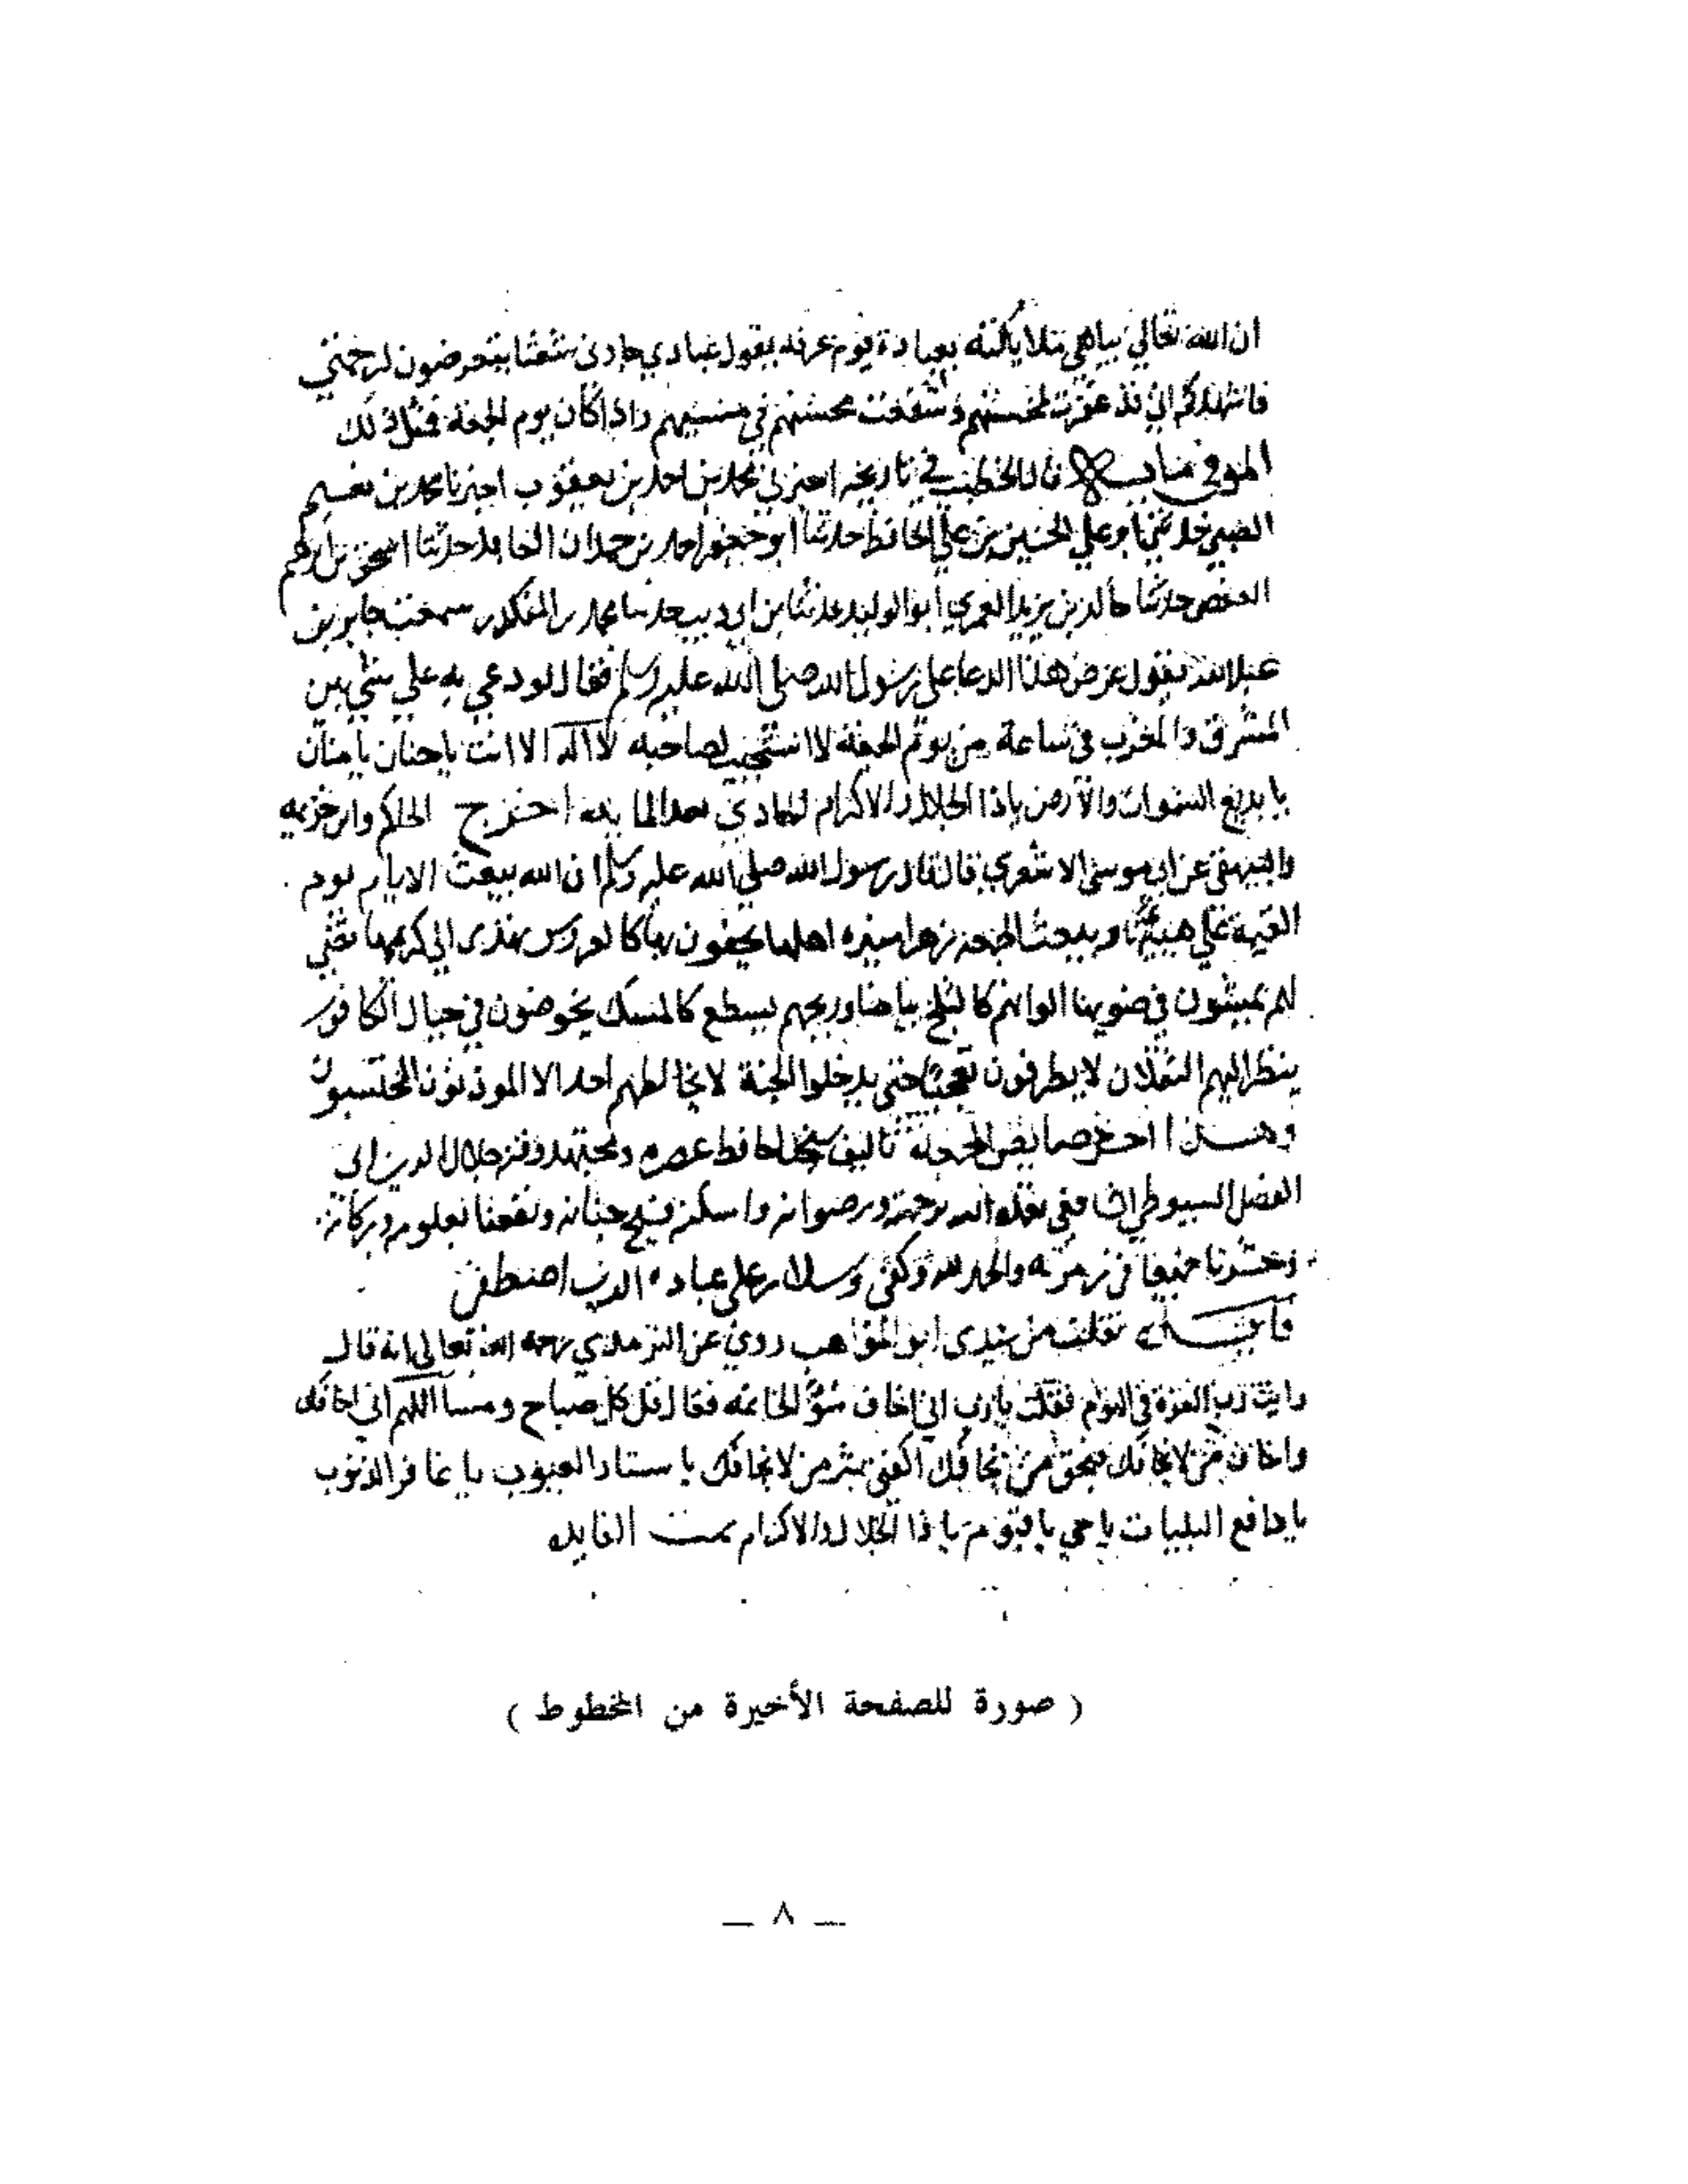 ان الله تعالى يباهي ملايكته بعباده يوم عرفه يقول عبادي جاوني شعثا يتعرضون لرحمتي
فاشهدكم اني قد غفرت لمحسنهم وشفعت محسنهم في مسيهم واذا كان يوم الجمعة فمثل ذلك
قال الخطيب في تاريخه اخبرني محمد بن احمد بن يعقوب اخبرنا محمد بن نعيم
الضبي حدثني ابو علي الحسين بن علي الحافظ حدثنا ابو جعفر احمد بن حمدان العابد حدثنا اسحق بن ابرهيم
حدثنا خالد بن يزيد العمري ابو الوليد حدثنا ابن ابي ذيب حدثنا محمد بن المنكدر سمعت جابر بن
عبد الله يقول عرض هذا الدعا على رسول الله صلى الله عليه وسلم فقال لو دعي به على شي بين
المشرق والمغرب في ساعة من يوم الجمعة لا استجيب لصاحبه لا اله الا انت ياحنان يامنان
يا بديع السموات والارض ياذا الجلال والاكرام الحادي بعد المايه اخرج الحاكم وابن خزيمه
والبيهقي عن ابي موسى الاشعري قال قال رسول الله صلى الله عليه وسلم ان الله يبعث الايام يوم
القيمة على هيئتها ويبعث الجمعه زهرا منيره اهلها يحفون بها كالعروس تهدى الى كريمها تضي
لهم يمشون في ضويها الوانهم كالثلج بياضا وريحهم يسطع كالمسك يخوضون في جبال الكافور
ينظر اليهم الثقلان لا يطرفون تعجبا حتى يدخلوا الجنة لا يخالطهم احد الا الموذنون المحتسبون
وهذا اخر خصايص الجمعة تاليف شيخنا حافظ عصره ومجتهد وقته جلال الدين ابي
الفضل السيوطي الشافعي تغمده الله برحمته ورضوانه واسكنه فسيح جنانه ونفعنا بعلومه وبركاته
وحشرنا جميعا في زمرته والحمد لله وكفى وسلام على عباده الذين اصطفى
فايدة نقلت من سيدى ابو المواهب روي عن الترمذي رحمه الله تعالى انه قال
رايت رب العزة في النوم فقلت يارب اني اخاف سؤ الخاتمه فقال قل كل صباح ومسا اللهم اني اخافك
واخاف ممن لا يخافك فبحق من يخافك اكفني شر من لا يخافك يا ستار العيوب يا غافر الذنوب
يا دافع البليات يا حي يا قيوم يا ذا الجلال والاكرام تمت الفايده
( صورة للصفحة الأخيرة من المخطوط )
— ٨ —